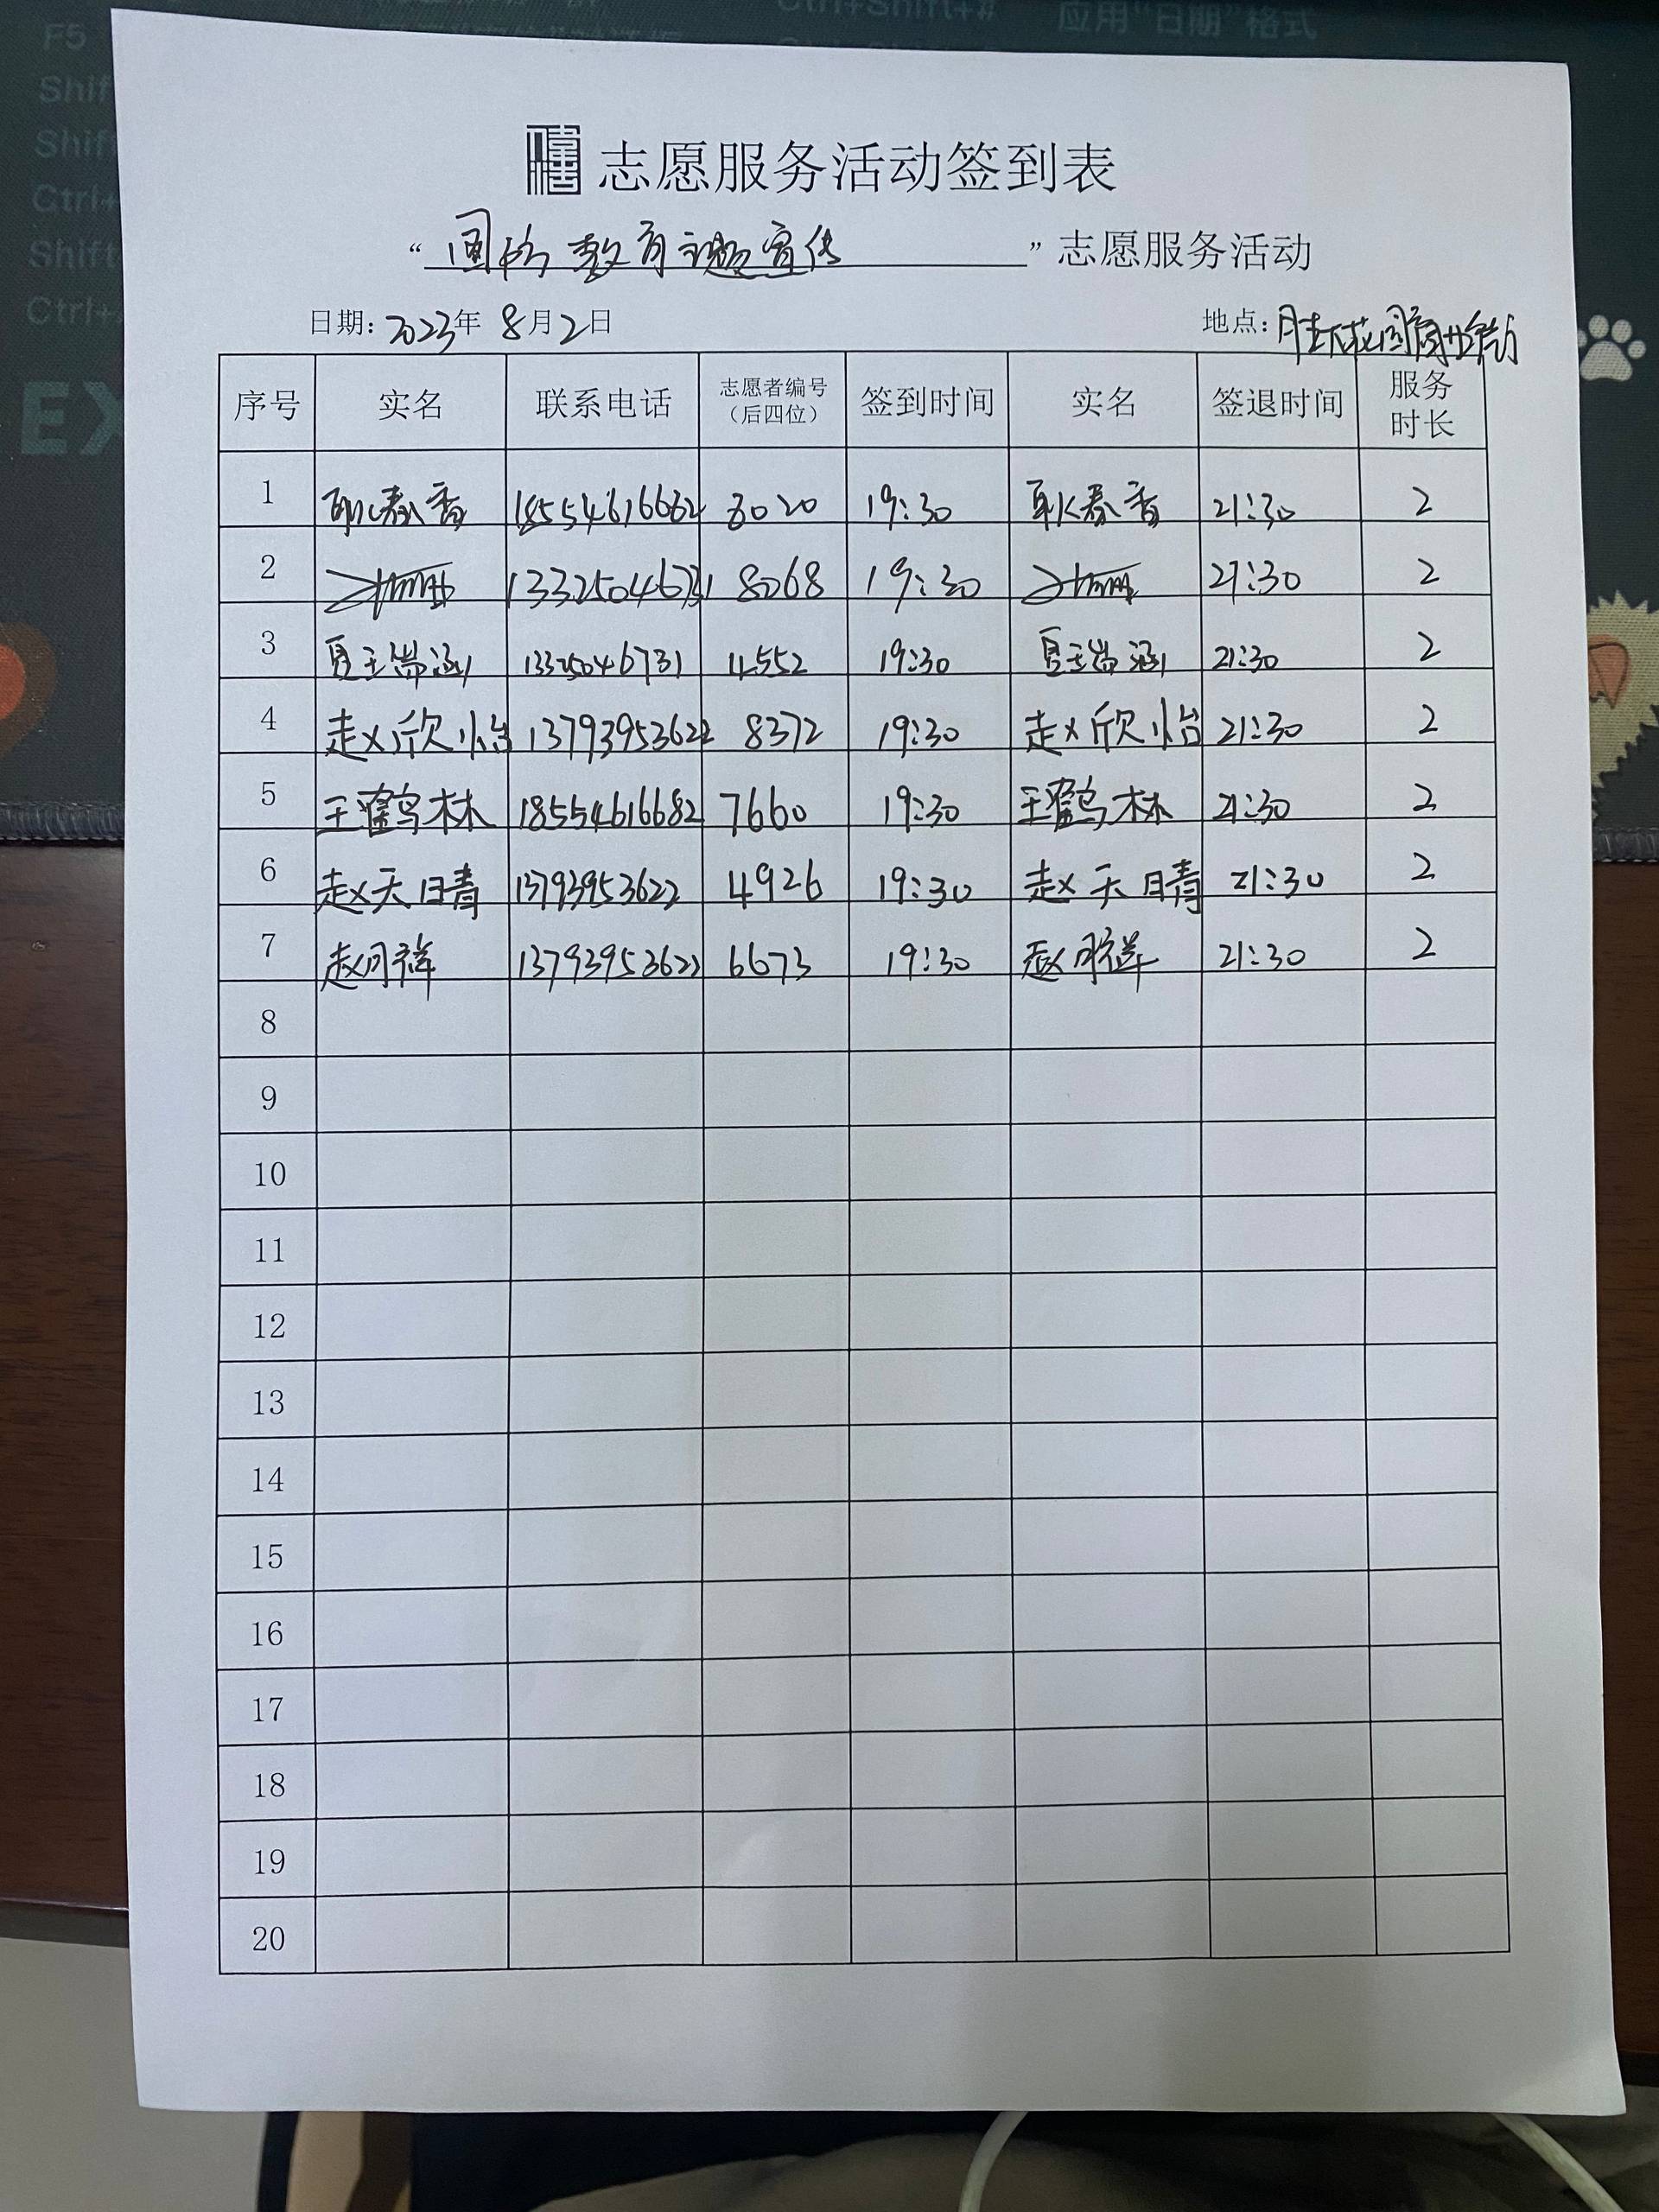 F5
Ctrl+Shift+#
应用“日期”格式
Shif
Shift
Ctrl+
Shift
Ctrl+
EX
志愿服务活动签到表
“国防教育主题宣传”志愿服务活动
日期: 2023年 8月2日
地点: 胜花园商业街
序号 实名 联系电话 志愿者编号（后四位） 签到时间 实名 签退时间 服务时长
1 耿春香 18554616682 8020 19:30 耿春香 21:30 2
2 13325046731 8068 19:30 21:30 2
3 夏玉瑞涵 13325046731 4552 19:30 夏玉瑞涵 21:30 2
4 赵欣怡 13793953622 8372 19:30 赵欣怡 21:30 2
5 王鹤林 18554616682 7660 19:30 王鹤林 21:30 2
6 赵天晴 13793953622 4926 19:30 赵天晴 21:30 2
7 赵月祥 13793953622 6673 19:30 赵月祥 21:30 2
8
9
10
11
12
13
14
15
16
17
18
19
20